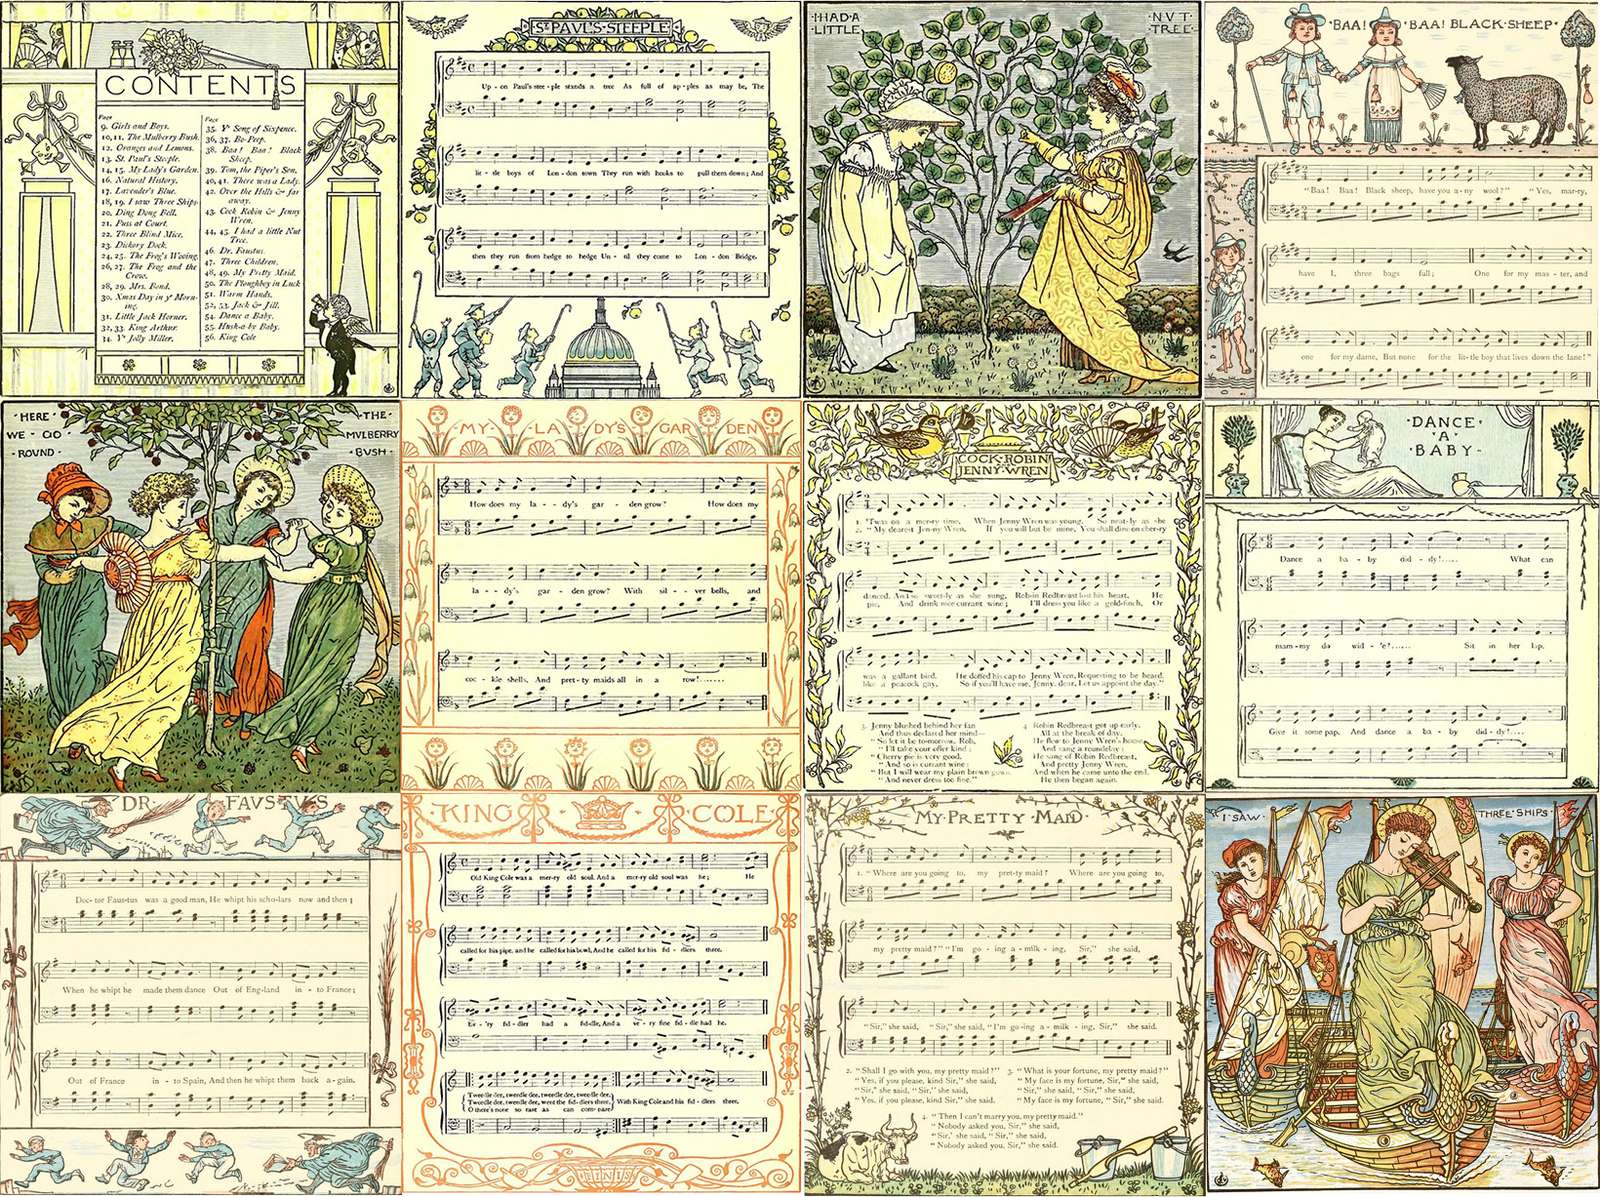 CONTENTS
Page
9. Girls and Boys.
10, 11. The Mulberry Bush.
12. Oranges and Lemons.
13. St. Paul's Steeple.
14, 15. My Lady's Garden.
16. Natural History.
17. Lavender's Blue.
18, 19. I saw Three Ships.
20. Ding Dong Bell.
21. Puss at Court.
22. Three Blind Mice.
23. Dickory Dock.
24, 25. The Frog's Wooing.
26, 27. The Frog and the
Crow.
28, 29. Mrs. Bond.
30. Xmas Day in ye Morn-
ing.
31. Little Jack Horner.
32, 33. King Arthur.
34. Ye Jolly Miller.
Page
35. Ye Song of Sixpence.
36, 37. Bo-Peep.
38. Baa! Baa! Black
Sheep.
39. Tom, the Piper's Son.
40, 41. There was a Lady.
42. Over the Hills & far
away.
43. Cock Robin & Jenny
Wren.
44, 45. I had a little Nut
Tree.
46. Dr. Faustus.
47. Three Children.
48, 49. My Pretty Maid.
50. The Ploughboy in Luck
51. Warm Hands.
52, 53. Jack & Jill.
54. Dance a Baby.
55. Hush-a-by Baby.
56. King Cole
ST PAVL'S STEEPLE
Up - on Paul's stee - ple stands a tree As full of ap - ples as may be, The
lit - tle boys of Lon - don town They run with hooks to pull them down; And
then they run from hedge to hedge Un - til they come to Lon - don Bridge.
I HAD A NVT
LITTLE TREE
BAA! BAA! BLACK SHEEP
"Baa! Baa! Black sheep, have you a-ny wool?" "Yes, mar-ry,
have I, three bags full; One for my mas - ter, and
one for my dame, But none for the lit-tle boy that lives down the lane!"
HERE THE
WE GO MVLBERRY
ROUND BUSH
MY LADY'S GARDEN
How does my la - - dy's gar - den grow? How does my
la - - dy's gar - den grow? With sil - - ver bells, and
coc - kle shells, And pret-ty maids all in a row!.......
COCK ROBIN
JENNY WREN
1. 'Twas on a mer-ry time, When Jenny Wren was young, So neat-ly as she
2. "My dearest Jen-ny Wren, If you will but be mine, You shall dine on cher-ry
danced, And so sweet-ly as she sung, Rob-in Redbreast lost his heart, He
pie, And drink nice currant wine; I'll dress you like a gold-finch, Or
was a gallant bird, He doffed his cap to Jenny Wren, Requesting to be heard.
like a peacock gay, So if you'll have me, Jenny, dear, Let us appoint the day."
3. Jenny blushed behind her fan
And thus declared her mind—
"So let it be to-morrow, Rob,
"I'll take your offer kind;
"Cherry pie is very good,
"And so is currant wine;
"But I will wear my plain brown gown
"And never dress too fine."
4. Robin Redbreast got up early,
All at the break of day,
He flew to Jenny Wren's house
And sang a roundelay;
He sang of Robin Redbreast,
And pretty Jenny Wren,
And when he came unto the end,
He then began again.
DANCE
A
BABY
Dance a ba - by did - dy!..... What can
mam-my do wid - 'e?...... Sit in her lap,
Give it some pap, And dance a ba - by did-dy!....
DR. FAVSTVS
Doc-tor Faus-tus was a good man, He whipt his scho-lars now and then;
When he whipt he made them dance Out of Eng-land in - to France;
Out of France in - to Spain, And then he whipt them back a-gain.
KING COLE
Old King Cole was a mer-ry old soul, And a mer-ry old soul was he; He
called for his pipe, and he called for his bowl, And he called for his fid - dlers three.
Ev-'ry fid-dler had a fid-dle, And a ve - ry fine fid-dle had he.
Twee-dle dee, twee-dle dee, tweedle dee, tweedle dee,
Tweedle dee, tweedle dee, went the fid-dlers three,
O there's none so rare as can com-pare
With King Cole and his fid - dlers three.
FINIS
MY PRETTY MAID
1. "Where are you going to, my pret-ty maid? Where are you going to,
my pretty maid?" "I'm go - ing a-milk - ing, Sir," she said,
"Sir," she said, "Sir," she said, "I'm go-ing a-milk - ing, Sir," she said.
2. "Shall I go with you, my pretty maid?"
"Yes, if you please, kind Sir," she said,
"Sir," she said, "Sir," she said,
"Yes, if you please, kind Sir," she said.
3. "What is your fortune, my pretty maid?"
"My face is my fortune, Sir," she said,
"Sir," she said, "Sir," she said,
"My face is my fortune, "Sir," she said.
4. "Then I can't marry you, my pretty maid."
"Nobody asked you, Sir," she said,
"Sir," she said, "Sir," she said,
"Nobody asked you, Sir," she said.
I SAW THREE SHIPS